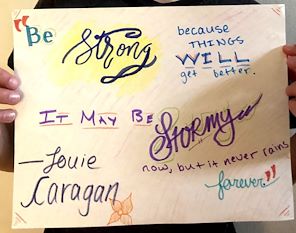 "Be Strong because
THINGS
WILL
get better.
IT MAY BE STORMY
now, but it never rains
forever"
—Louie
Caragan